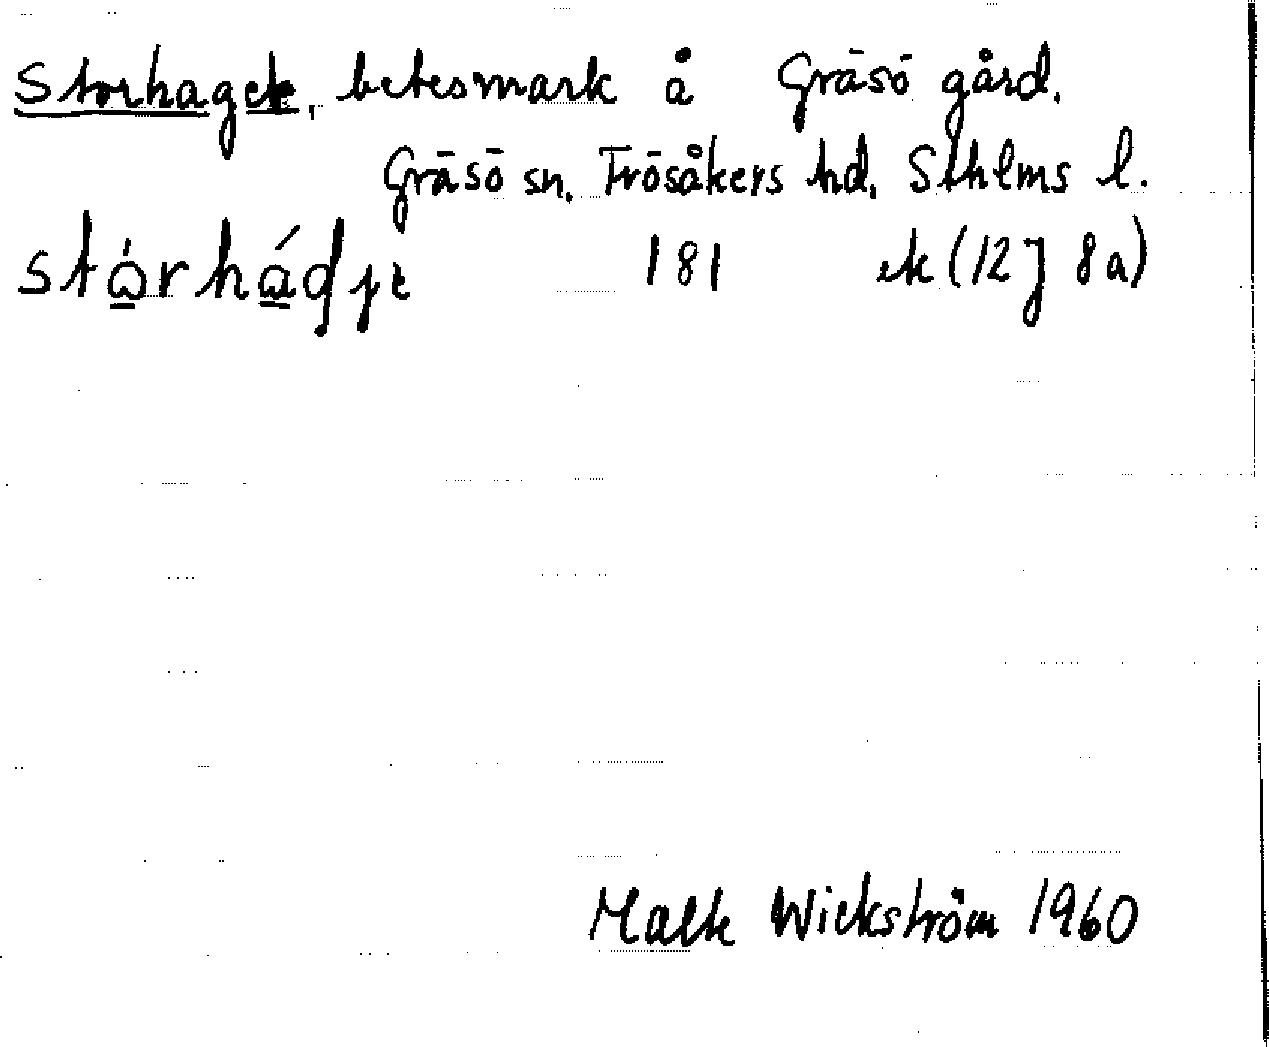 Storhaget, betesmark å Gräsö gård.
Gräsö sn. Frösåkers hd. Sthlms l.
181 ek (12 J 8a)
Malte Wickström 1960